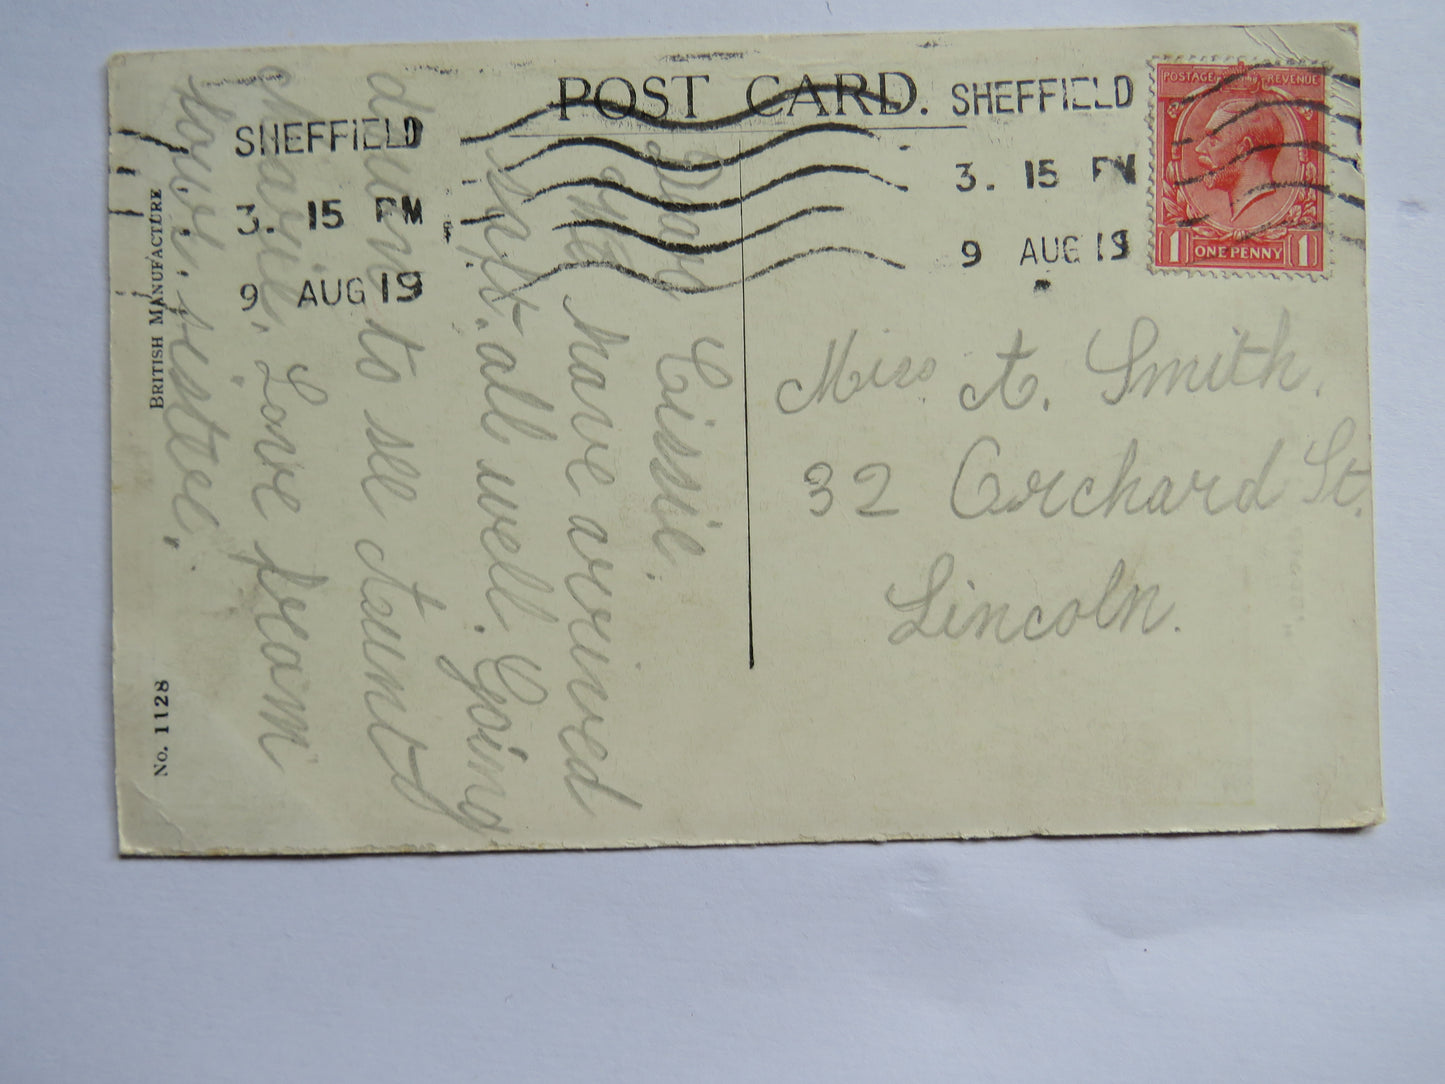 POST CARD.
SHEFFIELD
3. 15 PM
9 AUG 19
SHEFFIELD
3. 15 PM
9 AUG 19
POSTAGE REVENUE
1 ONE PENNY 1
Miss A. Smith.
32 Orchard St.
Lincoln.
Dear Cissie.
We have arrived
safe. all well. Going
down to see Aunt
Love from
your sister.
BRITISH MANUFACTURE
No. 1128